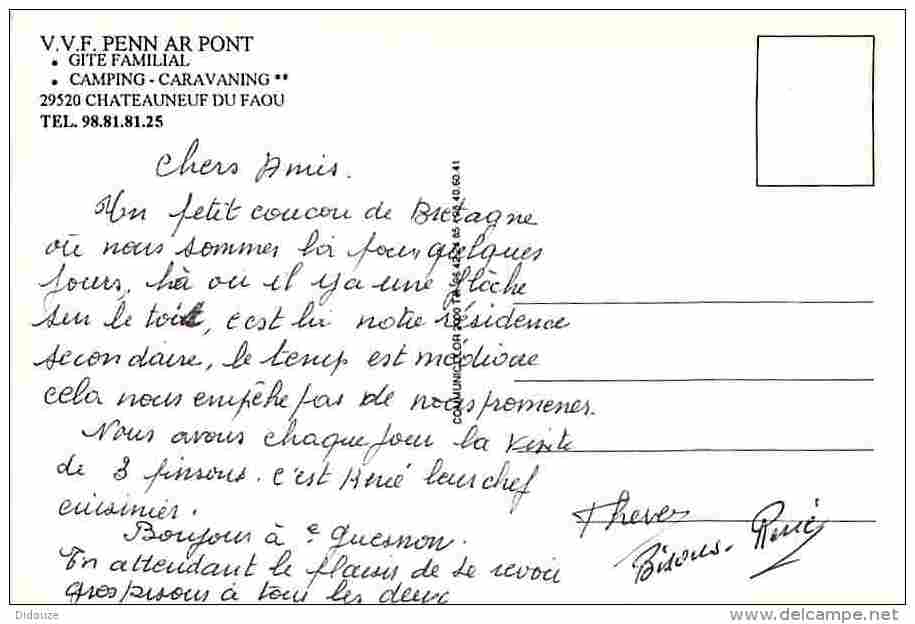 V.V.F. PENN AR PONT
• GITE FAMILIAL
• CAMPING - CARAVANING **
29520 CHATEAUNEUF DU FAOU
TEL. 98.81.81.25
Chers Amis.
Un petit coucou de Bretagne
où nous sommes là pour quelques
jours, là où il y a une flèche
sur le toit, c'est là notre résidence
secondaire, le temps est médiocre
cela nous empêche pas de nous promener.
Nous avons chaque jour la visite
de 3 pinsons. c'est René leur chef
cuisinier.
Bonjour à
En attendant le plaisir de se revoir
gros bisous à tous les deux
Bisous. René
COMMUNICOLOR
Didouze
© delcampe.net